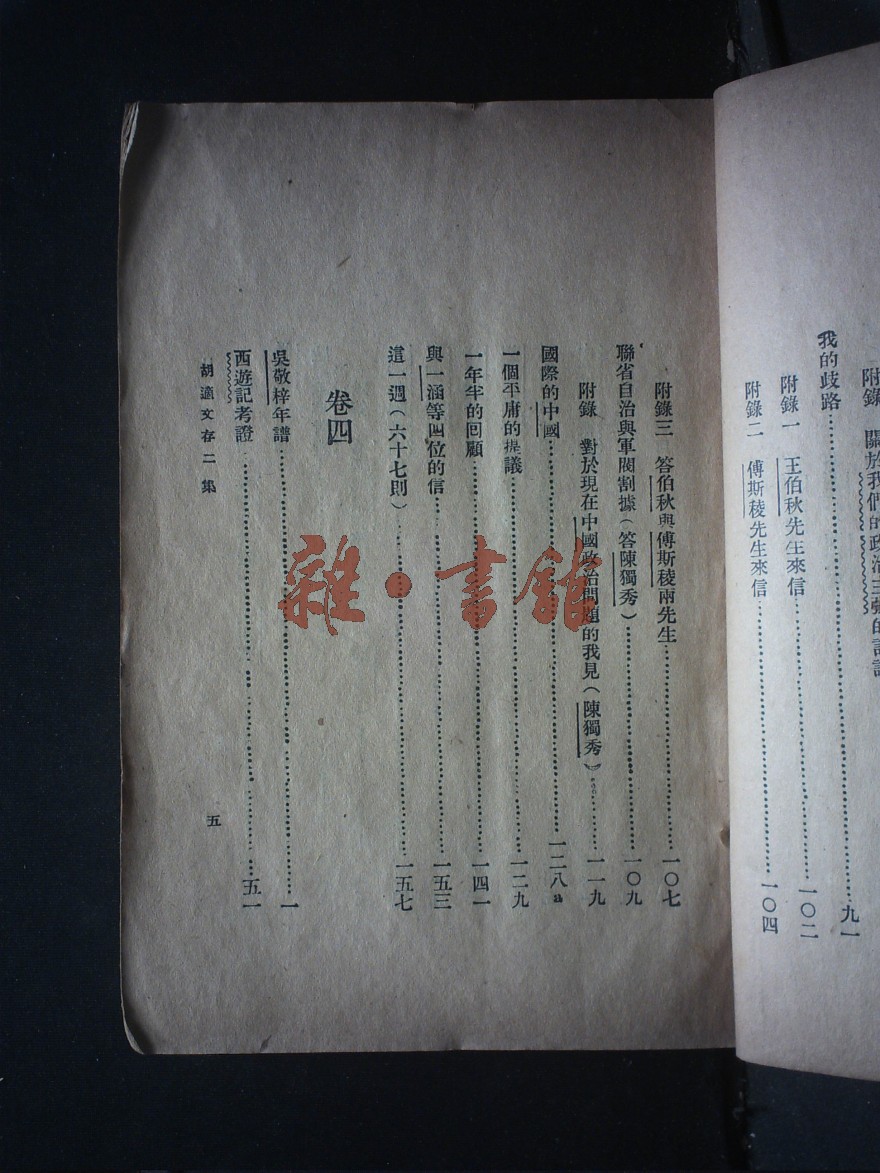 附錄 關於我們的政治主張的討論
我的歧路……九一
附錄一 王伯秋先生來信……一〇二
附錄二 傅斯稜先生來信……一〇四
附錄三 答伯秋與傅斯稜兩先生……一〇七
聯省自治與軍閥割據(答陳獨秀)……一〇九
附錄 對於現在中國政治問題的我見(陳獨秀)……一一九
國際的中國……一二八a
一個平庸的提議……一二九
一年半的回顧……一四一
與一涵等四位的信……一五三
這一週(六十七則)……一五七
卷四
吳敬梓年譜……一
西遊記考證……五一
胡適文存二集
五
雜·書館